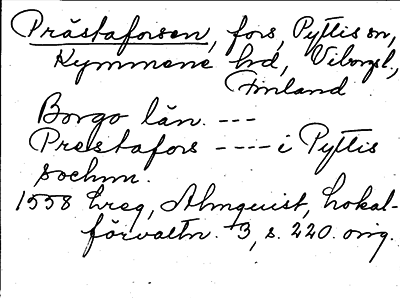 Prästaforsen, fors, Pyttis sn,
Kymmene hd, Viborgs l.,
Finland
Borgo län. ---
Prestafors ---- i Pyttis
sochnn.
1558 Ereg, Almquist, Lokal-
förvaltn. 3, s. 220. orig.